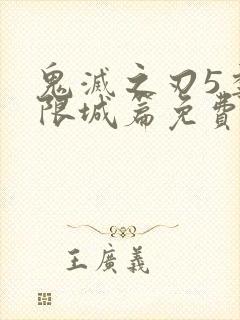 鬼滅之刃5季
限城篇免費
王廣義